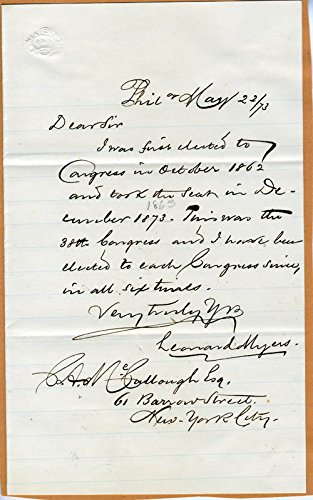 Phila May 23/73
Dear Sir
I was first elected to
Congress in October 1862
and took the seat in De-
1863
cember 1873. This was the
38th Congress and I have been
elected to each Congress since,
in all six times.
Very truly Yrs
Leonard Myers.
C. A. McCallough Esq.
61 Barrow Street.
New-York City.